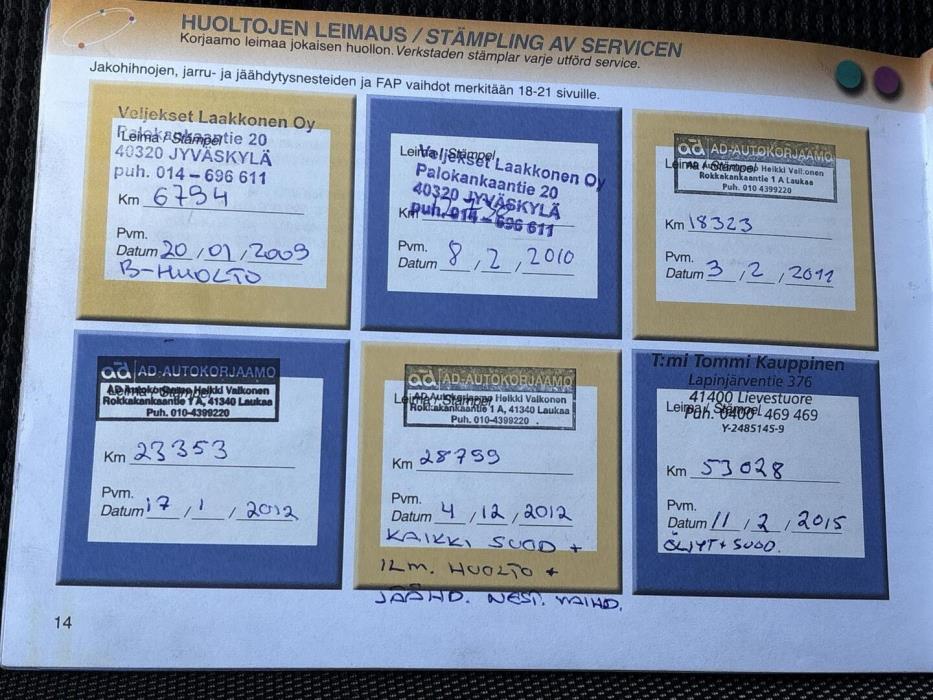 HUOLTOJEN LEIMAUS / STÄMPLING AV SERVICEN
Korjaamo leimaa jokaisen huollon. Verkstaden stämplar varje utförd service.
Jakohihnojen, jarru- ja jäähdytysnesteiden ja FAP vaihdot merkitään 18-21 sivuille.
Veljekset Laakkonen Oy
Palokankaantie 20
Leima / Stämpel
40320 JYVÄSKYLÄ
puh. 014 – 696 611
Km 6794
Pvm.
Datum 20 / 01 / 2009
B-HUOLTO
Leima / Stämpel
Veljekset Laakkonen Oy
Palokankaantie 20
40320 JYVÄSKYLÄ
Km
puh. 014 – 696 611
Pvm.
Datum 8 / 2 / 2010
ad AD-AUTOKORJAAMO
Leima / Stämpel
AD Autokorjaamo Heikki Valkonen
Rokkakankaantie 1 A Laukaa
Puh. 010 4399220
Km 18323
Pvm.
Datum 3 / 2 / 2011
ad AD-AUTOKORJAAMO
Leima / Stämpel
AD Autokorjaamo Heikki Valkonen
Rokkakankaantie 1 A, 41340 Laukaa
Puh. 010-4399220
Km 23353
Pvm.
Datum 17 / 1 / 2012
ad AD-AUTOKORJAAMO
Leima / Stämpel
AD Autokorjaamo Heikki Valkonen
Rokkakankaantie 1 A, 41340 Laukaa
Puh. 010-4399220
Km 28799
Pvm.
Datum 4 / 12 / 2012
KAIKKI SUOD +
ILM. HUOLTO +
JÄÄHD. NEST. VAIHD.
T:mi Tommi Kauppinen
Lapinjärventie 376
41400 Lievestuore
Leima / Stämpel
Puh. 0400 - 469 469
Y-2485145-9
Km 53028
Pvm.
Datum 11 / 2 / 2015
ÖLJYT + SUOD.
14